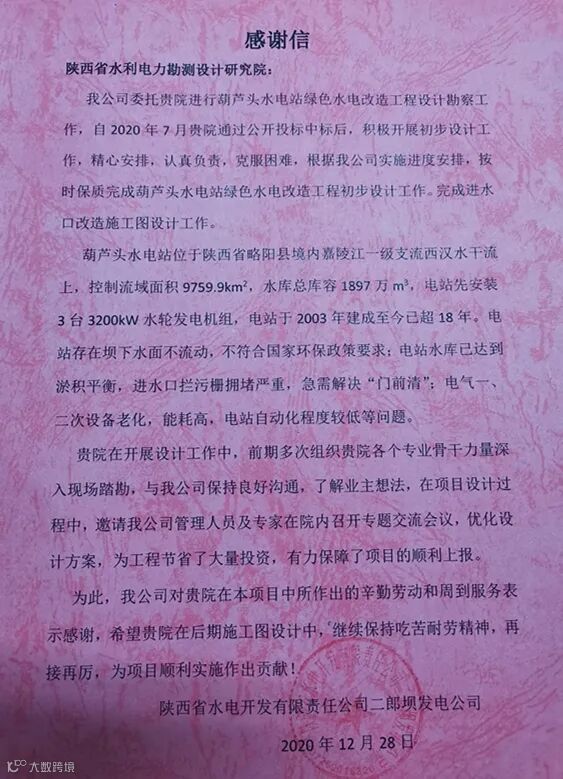 感谢信
陕西省水利电力勘测设计研究院：
我公司委托贵院进行葫芦头水电站绿色水电改造工程设计勘察工
作，自 2020 年 7 月贵院通过公开投标中标后，积极开展初步设计工
作，精心安排，认真负责，克服困难，根据我公司实施进度安排，按
时保质完成葫芦头水电站绿色水电改造工程初步设计工作。完成进水
口改造施工图设计工作。
葫芦头水电站位于陕西省略阳县境内嘉陵江一级支流西汉水干流
上，控制流域面积 9759.9km²，水库总库容 1897 万 m³，电站先安装
3 台 3200kW 水轮发电机组，电站于 2003 年建成至今已超 18 年。电
站存在坝下水面不流动，不符合国家环保政策要求；电站水库已达到
淤积平衡，进水口拦污栅拥堵严重，急需解决“门前清”；电气一、
二次设备老化，能耗高，电站自动化程度较低等问题。
贵院在开展设计工作中，前期多次组织贵院各个专业骨干力量深
入现场踏勘，与我公司保持良好沟通，了解业主想法，在项目设计过
程中，邀请我公司管理人员及专家在院内召开专题交流会议，优化设
计方案，为工程节省了大量投资，有力保障了项目的顺利上报。
为此，我公司对贵院在本项目中所作出的辛勤劳动和周到服务表
示感谢，希望贵院在后期施工图设计中，继续保持吃苦耐劳精神，再
接再厉，为项目顺利实施作出贡献！
陕西省水电开发有限责任公司二郎坝发电公司
2020 年 12 月 28 日
大数跨境